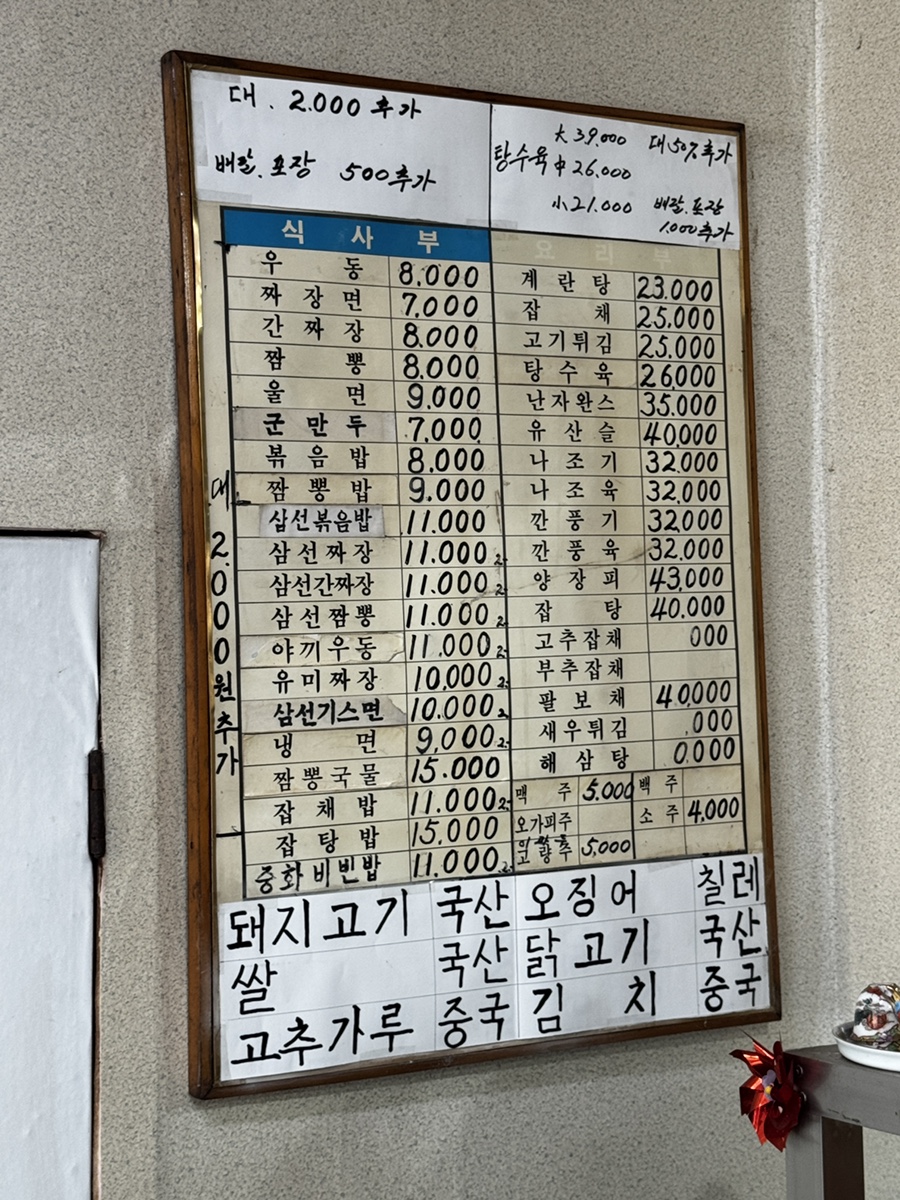 대. 2.000 추가
배달. 포장 500추가
大 39.000 대 50% 추가
탕수육 中 26.000
小 21.000 배달. 포장
1.000추가
식 사 부
우 동 8.000
짜 장 면 7,000
간 짜 장 8,000
짬 뽕 8.000
울 면 9.000
군 만 두 7,000
볶 음 밥 8,000
짬 뽕 밥 9.000
삼선볶음밥 11.000
삼 선 짜 장 11.000
삼선간짜장 11.000
삼 선 짬 뽕 11.000
야 끼 우 동 11.000
유 미 짜 장 10,000
삼선기스면 10.000
냉 면 9,000
짬 뽕 국 물 15.000
잡 채 밥 11.000
잡 탕 밥 15,000
중화비빈밥 11,000
대 2.000원 추가
요 리 부
계 란 탕 23.000
잡 채 25.000
고기튀김 25.000
탕 수 육 26,000
난자완스 35.000
유 산 슬 40,000
나 조 기 32.000
나 조 육 32,000
깐 풍 기 32,000
깐 풍 육 32.000
양 장 피 43,000
잡 탕 40.000
고추잡채 000
부추잡채
팔 보 채 40,000
새우튀김 .000
해 삼 탕 0.000
맥 주 5.000 백 주
오가피주 소 주 4,000
고량주 5,000
돼지고기 국산 오징어 칠레
쌀 국산 닭고기 국산
고추가루 중국 김 치 중국